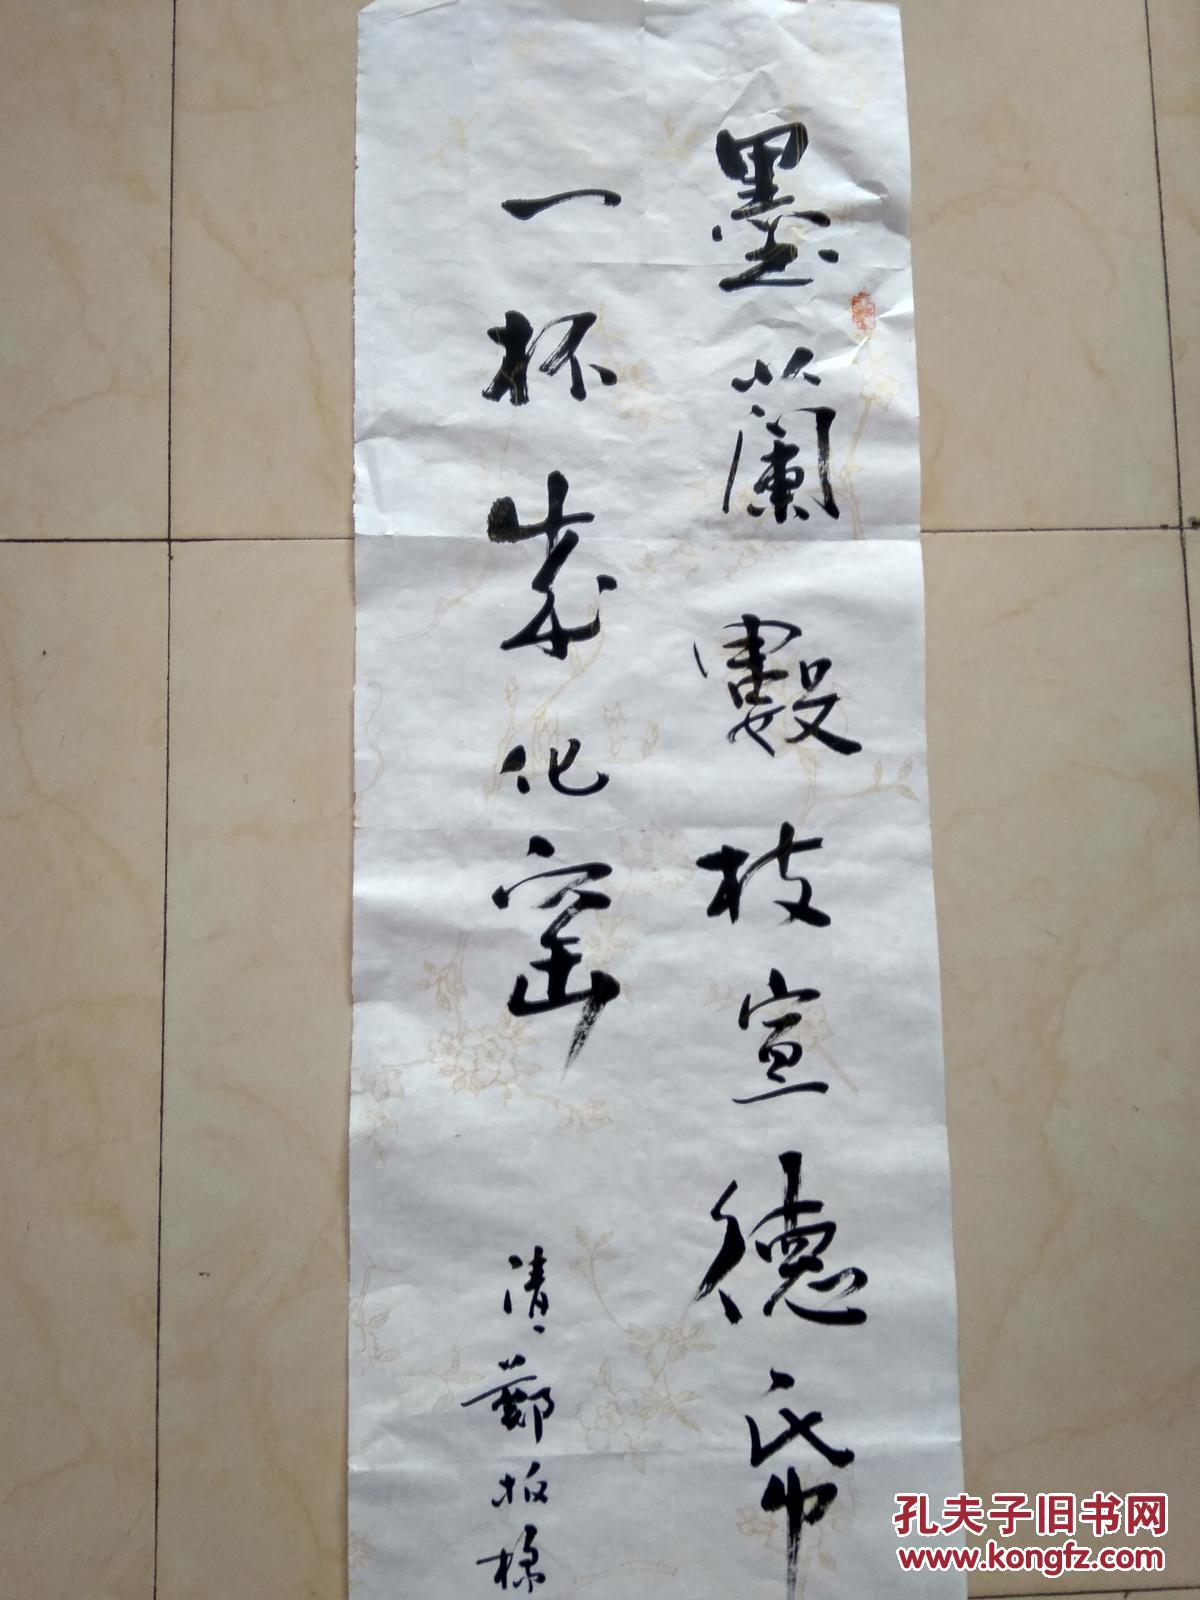 墨蘭數枝宣德帋
一杯成化窑
清鄭板橋
孔夫子旧书网
www.kongfz.com